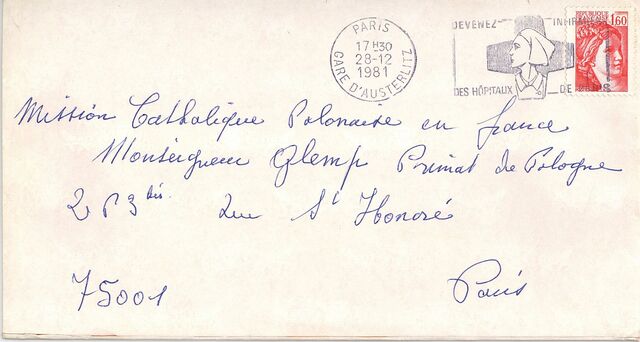 PARIS
17H30
28-12
1981
GARE D'AUSTERLITZ
DEVENEZ
DES HÔPITAUX DE
1,60
Mission Catholique Polonaise en france
Monseigneur Glemp Primat de Pologne
bis
Rue St Honoré
75001 Paris